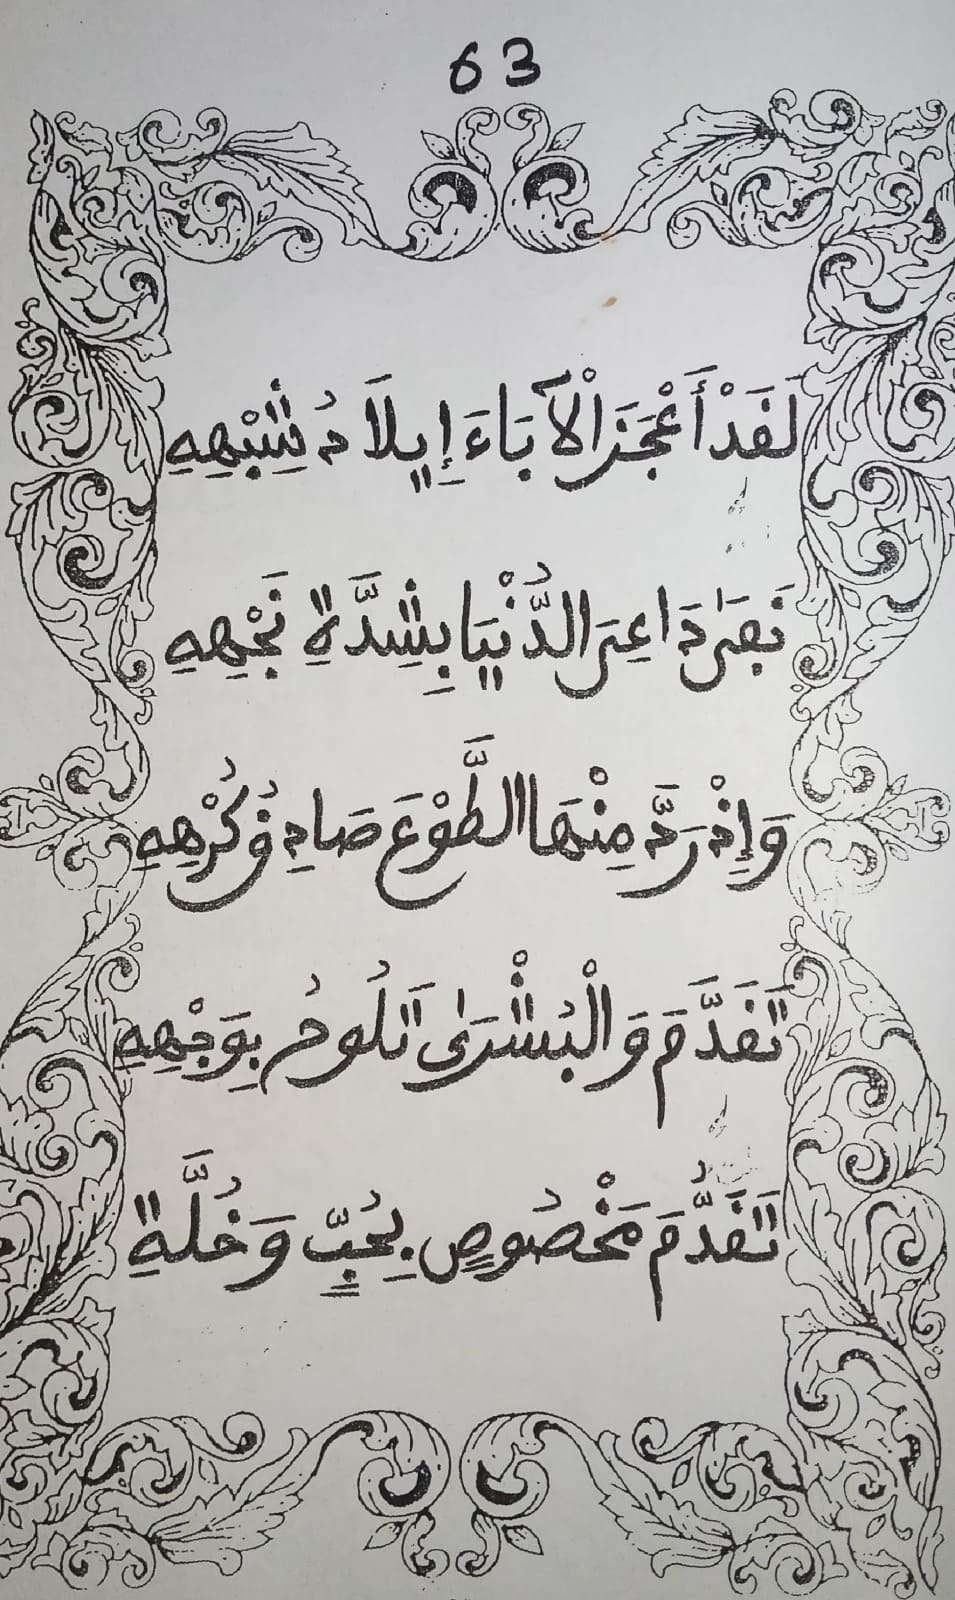 63
لَقَدْ أَعْجَزَ الْآبَاءَ إِيلَادُ شِبْهِهِ
نَفَىٰ دَاعِيَ الدُّنْيَا بِشِدَّةِ نَجْهِهِ
وَإِذْ رَدَّ مِنْهَا الطَّوْعَ صَادِقُ كُرْهِهِ
تَقَدَّمَ وَالْبُشْرَىٰ تَلُوحُ بِوَجْهِهِ
تَقَدُّمَ مَخْصُوصٍ بِحُبٍّ وَخُلَّةِ